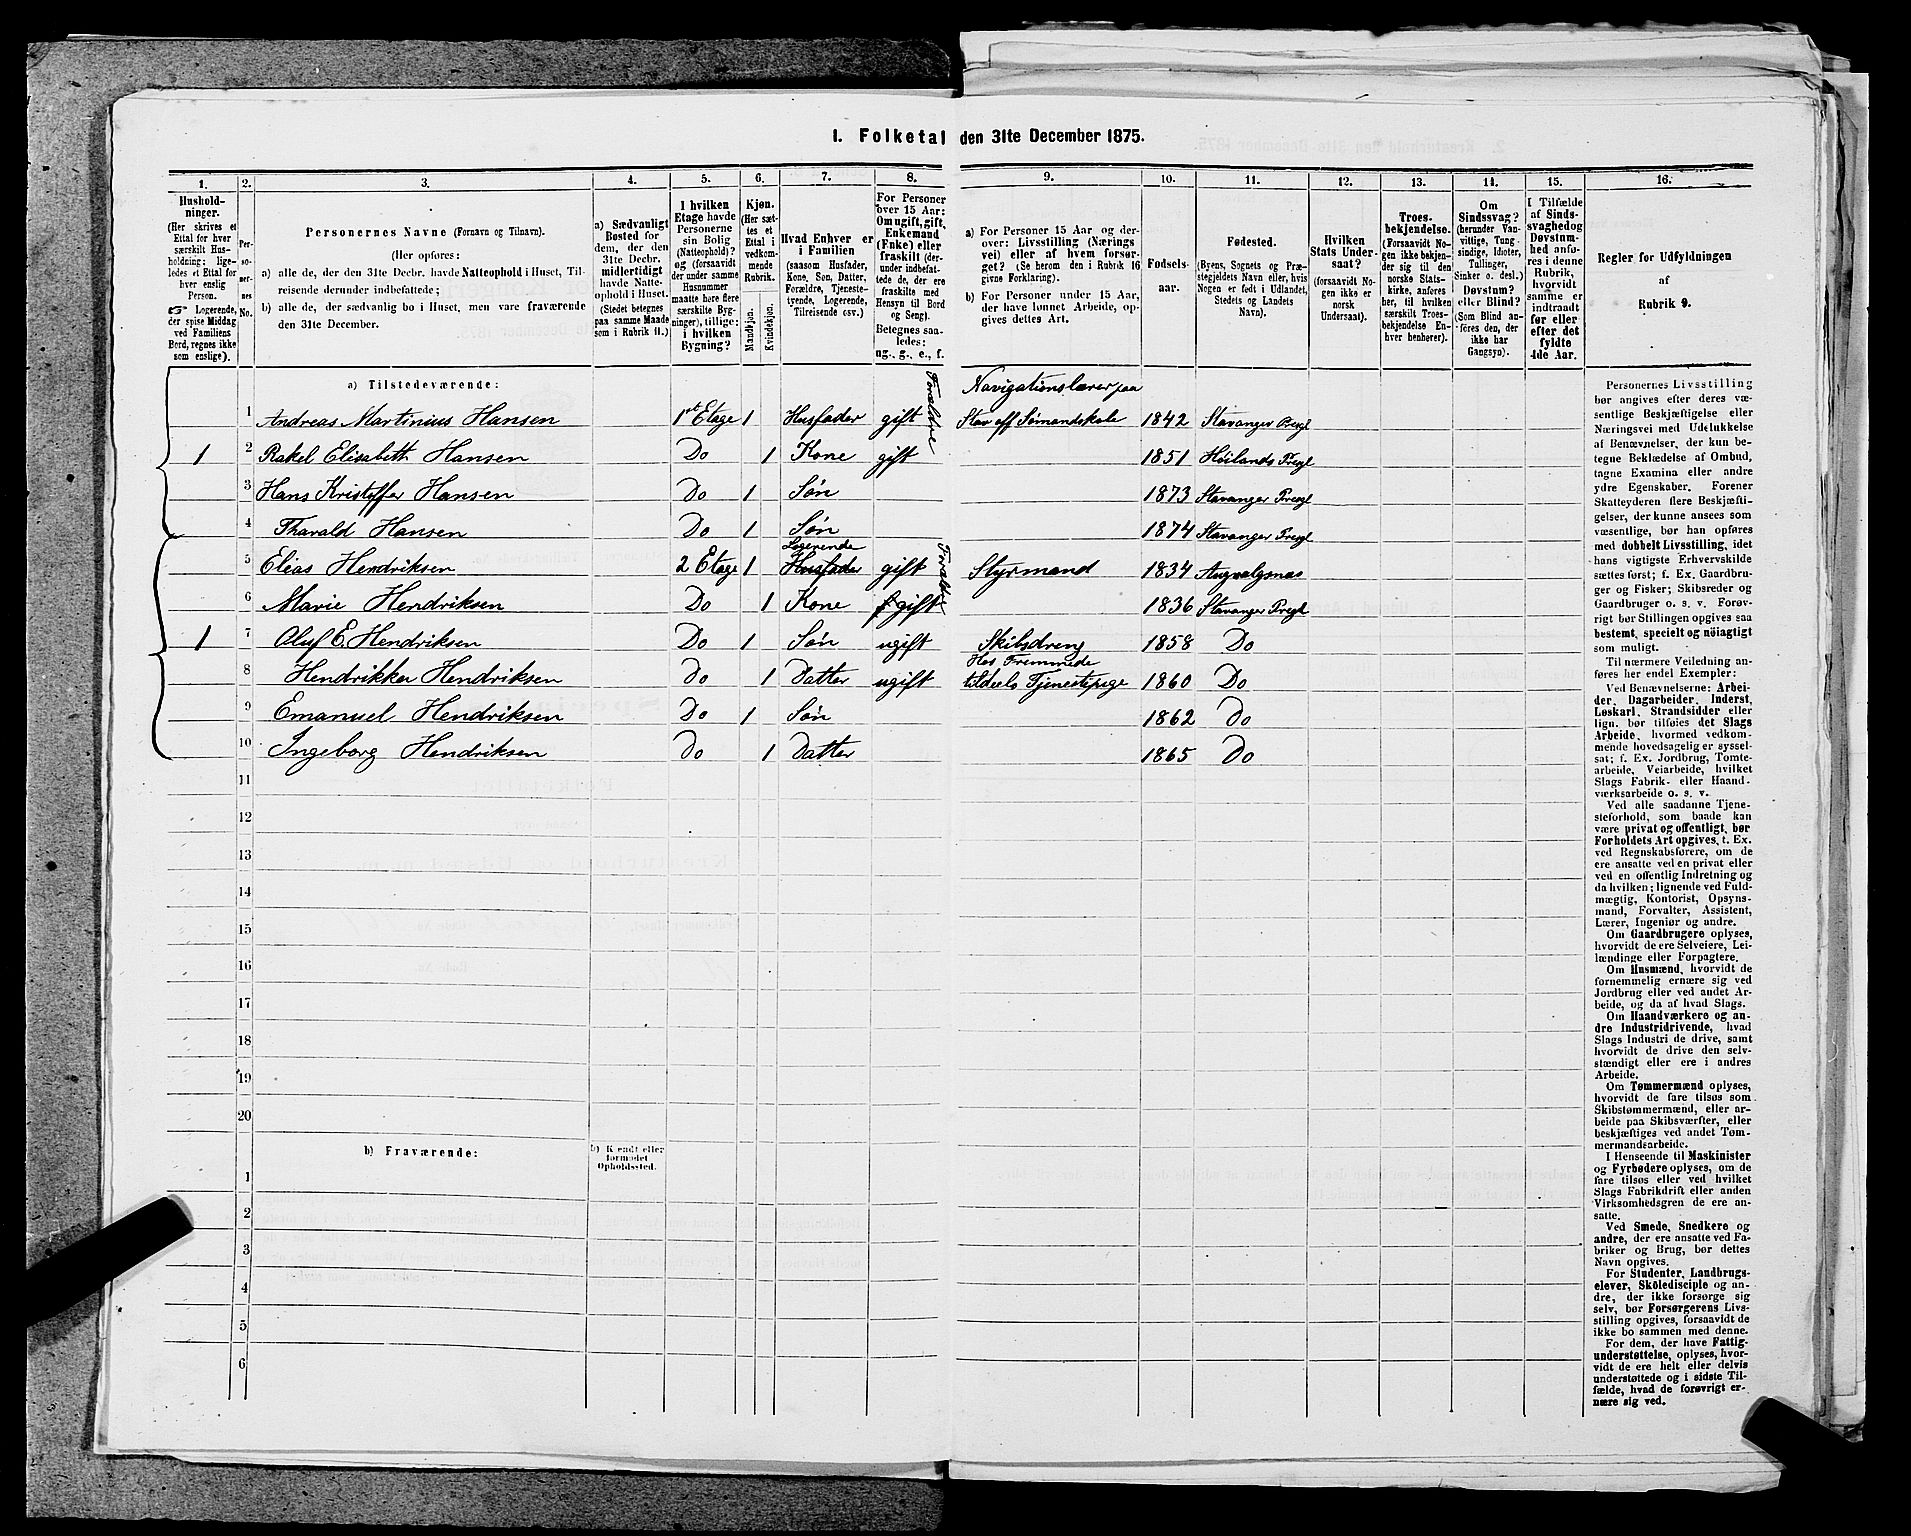 1. Folketal den 31te December 1875.
1. 2. 3. 4. 5. 6. 7. 8. 9. 10. 11. 12. 13. 14. 15. 16.
Hushold-
ninger.
(Her skrives et
Ettal for hver
særskilt Hus-
holdning; lige-
ledes et Ettal for
hver enslig
Person.
☞ Logerende,
der spise Middag
ved Familiens
Bord, regnes ikke
som enslige).
Per-
so-
ner-
nes
No.
Personernes Navne (Fornavn og Tilnavn).
(Her opføres:
a) alle de, der den 31te Decbr. havde Natteophold i Huset, Til-
reisende derunder indbefattede;
b) alle de, der sædvanlig bo i Huset, men vare fraværende
den 31te December.
a) Sædvanligt
Bosted for
dem, der den
31te Decbr.
midlertidigt
havde Natte-
ophold i Huset.
(Stedet betegnes
paa samme Maade
som i Rubrik 11.)
I hvilken
Etage havde
Personerne
sin Bolig
(Natteophold)?
og (forsaavidt
der under samme
Husnummer
maatte høre flere
særskilte Byg-
ninger), tillige:
i hvilken
Bygning?
Kjøn.
(Her sæt-
tes et
Ettal i
vedkom-
mende
Rubrik.
Mandkjøn.
Kvindekjøn.
Hvad Enhver er
i Familien
(saasom Husfader,
Kone, Søn, Datter,
Forældre, Tjeneste-
tyende, Logerende,
Tilreisende osv.)
For Personer
over 15 Aar:
Om ugift, gift,
Enkemand
(Enke) eller
fraskilt (der-
under indbefat-
tede de, der ere
fraskilte med
Hensyn til Bord
og Seng).
Betegnes saa-
ledes:
ug., g., e., f.
a) For Personer 15 Aar og der-
over: Livsstilling (Nærings
vei) eller af hvem forsør-
get? (Se herom den i Rubrik 16
givne Forklaring).
b) For Personer under 15 Aar,
der have lønnet Arbeide, op-
gives dettes Art.
Fødsels-
aar.
Fødested.
(Byens, Sognets og Præ-
stegjeldets Navn eller, hvis
Nogen er født i Udlandet,
Stedets og Landets
Navn).
Hvilken
Stats Under-
saat?
(forsaavidt No-
gen ikke er
norsk
Undersaat).
Troes-
bekjendelse.
(Forsaavidt No-
gen ikke bekjen-
der sig til den
norske Stats-
kirke, anføres
her, til hvilken
særskilt Troes-
bekjendelse En-
hver henhører).
Om
Sindssvag?
(herunder Van-
vittige, Tung-
sindige, Idioter,
Tullinger,
Sinker o. desl.)
Døvstum?
eller Blind?
(Som Blind an-
føres den, der
ikke har
Gangsyn).
I Tilfælde
af Sinds-
svaghed og
Døvstum-
hed anfø-
res i denne
Rubrik,
hvorvidt
samme er
indtraadt
før eller
efter det
fyldte
4de Aar.
Regler for Udfyldningen
af
Rubrik 9.
a) Tilstedeværende:
Forældre
Navigationslærer paa
1 Andreas Martinius Hansen 1ste Etage 1 Husfader gift Stav off Sømandskole 1842 Stavanger Presgl
1 2 Rakel Elisabeth Hansen Do 1 Kone gift 1851 Høilands Presgl
3 Hans Kristoffer Hansen Do 1 Søn 1873 Stavanger Presgl
4 Tharald Hansen Do 1 Søn 1874 Stavanger Presgl
Logerende
5 Elias Hendriksen 2 Etage 1 Husfader gift Styrmand 1834
6 Marie Hendriksen Do 1 Kone gift 1836 Stavanger Presgl
1 7 Oluf E. Hendriksen Do 1 Søn ugift Skibsdreng 1858 Do
Hos Fremmede
8 Hendrikke Hendriksen Do 1 Datter ugift tildeels Tjenestepige 1860 Do
9 Emanuel Hendriksen Do 1 Søn 1862 Do
10 Ingeborg Hendriksen Do 1 Datter 1865 Do
11
12
13
14
15
16
17
18
19
20
b) Fraværende:
b) Kjendt eller
formodet
Opholdssted.
1
2
3
4
5
6
Personernes Livsstilling
bør angives efter deres væ-
sentlige Beskjæftigelse eller
Næringsvei med Udelukkelse
af Benævnelser, der kun be-
tegne Beklædelse af Ombud,
tagne Examina eller andre
ydre Egenskaber. Forener
Skatteyderen flere Beskjæfti-
gelser, der kunne ansees som
væsentlige, bør han opføres
med dobbelt Livsstilling, idet
hans vigtigste Erhvervskilde
sættes først; f. Ex. Gaardbru-
ger og Fisker; Skibsreder og
Gaardbruger o. s. v. Forøv-
rigt bør Stillingen opgives saa
bestemt, specielt og nöiagtigt
som muligt.
Til nærmere Veiledning an-
føres her endel Exempler:
Ved Benævnelserne: Arbei-
der, Dagarbeider, Inderst,
Løskarl, Strandsidder eller
lign. bør tilføies det Slags
Arbeide, hvormed vedkom-
mende hovedsagelig er syssel-
sat; f. Ex. Jordbrug, Tomte-
arbeide, Veiarbeide, hvilket
Slags Fabrik- eller Haand-
værksarbeide o. s. v.
Ved alle saadanne Tjene-
steforhold, som baade kan
være privat og offentligt, bør
Forholdets Art opgives, t. Ex.
ved Regnskabsførere, om de
ere ansatte ved en privat eller
ved en offentlig Indretning og
da hvilken; lignende ved Fuld-
mægtig, Kontorist, Opsyns-
mand, Forvalter, Assistent,
Lærer, Ingeniør og andre.
Om Gaardbrugere oplyses,
hvorvidt de ere Selveiere, Lei-
lændinge eller Forpagtere.
Om Husmænd, hvorvidt de
fornemmelig ernære sig ved
Jordbrug eller ved andet Ar-
beide, og da af hvad Slags.
Om Haandværkere og an-
dre Industridrivende, hvad
Slags Industri de drive, samt
hvorvidt de drive den selv-
stændigt eller ere i andres
Arbeide.
Om Tømmermænd oplyses,
hvorvidt de fare tilsøs som
Skibstømmermænd, eller ar-
beide paa Skibsværfter, eller
beskjæftiges ved andet Tøm-
mermandsarbeide.
I Henseende til Maskinister
og Fyrbødere oplyses, om de
fare tilsøs eller ved hvilket
Slags Fabrikdrift eller anden
Virksomhedsgren de ere an-
satte.
Ved Smede, Snedkere og
andre, der ere ansatte ved Fa-
briker og Brug, bør dettes
Navn opgives.
For Studenter, Landbrugs-
elever, Skoledisciple og an-
dre, der ikke forsørge sig
selv, bør Forsørgerens Livs-
stilling opgives, forsaavidt de
ikke bo sammen med denne.
For dem, der have Fattig-
understøttelse, oplyses, hvor-
vidt de ere helt eller delvis
understøttede og i sidste Til-
fælde, hvad de forøvrigt er-
nære sig ved.